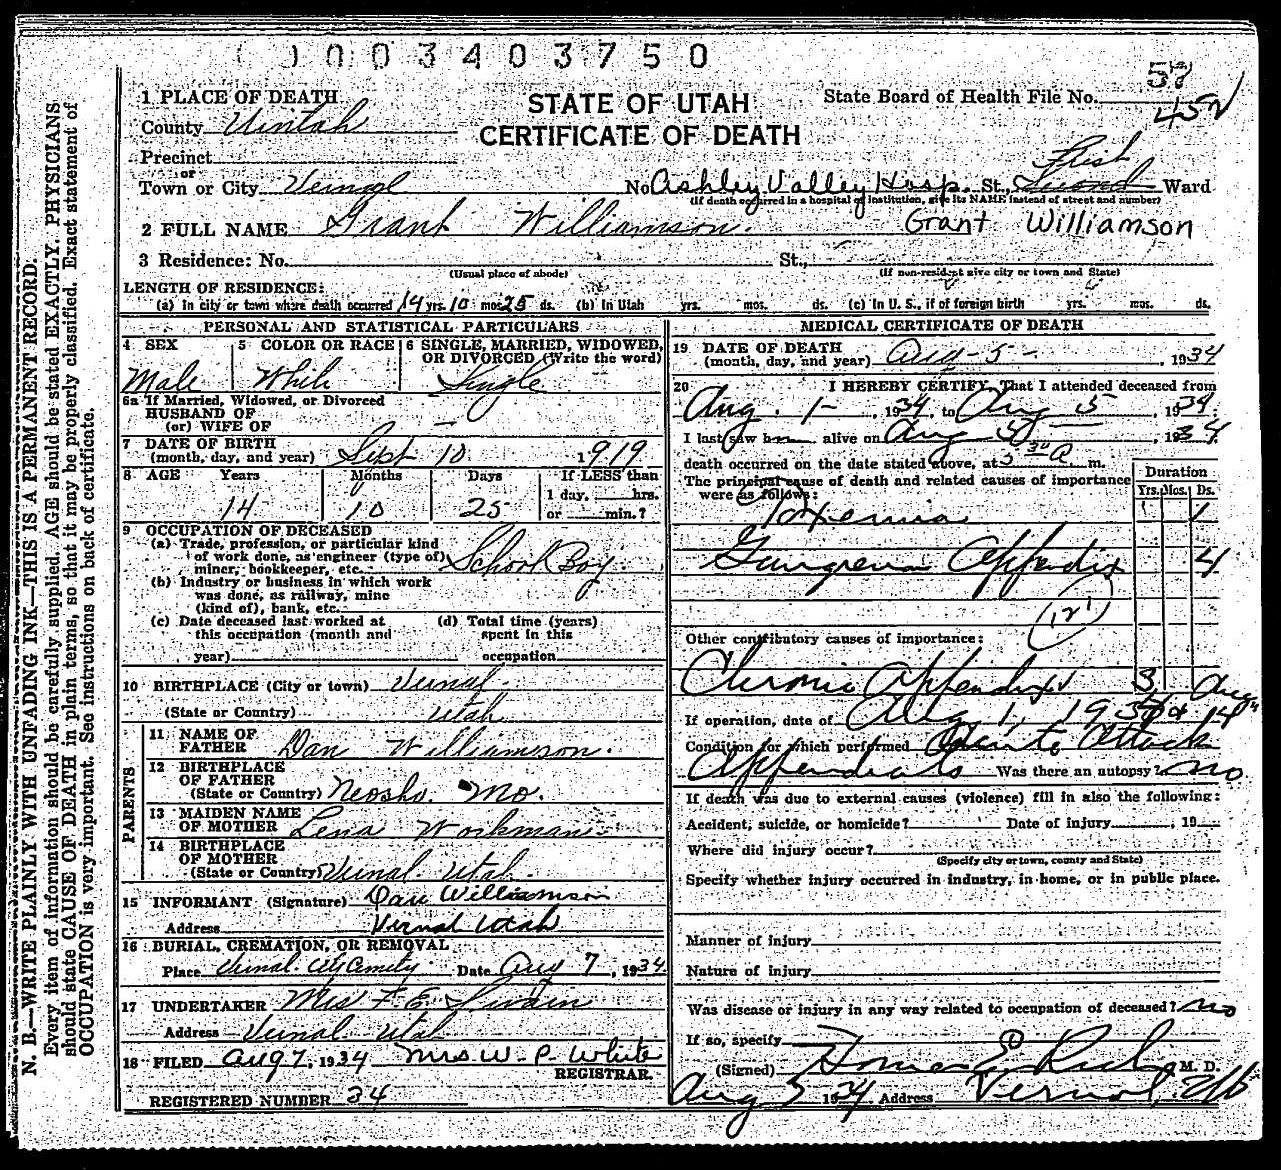 0003403750
57
452
1 PLACE OF DEATH
STATE OF UTAH
CERTIFICATE OF DEATH
State Board of Health File No.
County Uintah
Precinct
or
Town or City Vernal No. Ashley Valley Hosp. St., First Second Ward
(If death occurred in a hospital or institution, give its NAME instead of street and number)
2 FULL NAME Grant Williamson. Grant Williamson
3 Residence: No. St.,
(Usual place of abode) (If non-resident give city or town and State)
LENGTH OF RESIDENCE:
(a) In city or town where death occurred 14 yrs. 10 mos. 25 ds. (b) In Utah yrs. mos. ds. (c) In U. S., if of foreign birth yrs. mos. ds.
PERSONAL AND STATISTICAL PARTICULARS
4 SEX 5 COLOR OR RACE 6 SINGLE, MARRIED, WIDOWED,
OR DIVORCED (Write the word)
Male White Single
6a If Married, Widowed, or Divorced
HUSBAND OF
(or) WIFE OF —
7 DATE OF BIRTH
(month, day, and year) Sept 10 1919
8 AGE Years Months Days If LESS than
1 day, hrs.
or min.?
14 10 25
9 OCCUPATION OF DECEASED
(a) Trade, profession, or particular kind
of work done, as engineer (type of)
miner, bookkeeper, etc. School Boy
(b) Industry or business in which work
was done, as railway, mine
(kind of), bank, etc.
(c) Date deceased last worked at
this occupation (month and
year)
(d) Total time (years)
spent in this
occupation
10 BIRTHPLACE (City or town) Vernal
(State or Country) Utah
PARENTS
11 NAME OF
FATHER Dan Williamson.
12 BIRTHPLACE
OF FATHER
(State or Country) Neosho. Mo.
13 MAIDEN NAME
OF MOTHER Lena Workman
14 BIRTHPLACE
OF MOTHER
(State or Country) Vernal Utah
15 INFORMANT (Signature) Dan Williamson
Address Vernal Utah
16 BURIAL, CREMATION, OR REMOVAL
Place Vernal City Date Aug 7, 1934
17 UNDERTAKER Mrs F. E.
Address Vernal. Utah
18 FILED Aug 7, 1934 Mrs W. P. White
REGISTRAR.
REGISTERED NUMBER 34
MEDICAL CERTIFICATE OF DEATH
19 DATE OF DEATH
(month, day, and year) Aug - 5 - , 1934
20 I HEREBY CERTIFY, That I attended deceased from
Aug. 1 - , 1934, to Aug 5 , 1934.
I last saw h alive on Aug 5 , 1934.
death occurred on the date stated above, at A m.
The principal cause of death and related causes of importance
were as follows:
Duration
Yrs. Mos. Ds.
Toxemia 1
Appendix 4
(121)
Other contributory causes of importance:
Chronic Appendix 3
If operation, date of Aug. 1, 1934
Condition for which performed Attack
Was there an autopsy? no
If death was due to external causes (violence) fill in also the following:
Accident, suicide, or homicide? Date of injury , 19
Where did injury occur?
(Specify city or town, county and State)
Specify whether injury occurred in industry, in home, or in public place.
Manner of injury
Nature of injury
Was disease or injury in any way related to occupation of deceased? no
If so, specify
(Signed) M. D.
Aug 5 1934 Address Vernal,
N. B.—WRITE PLAINLY WITH UNFADING INK—THIS IS A PERMANENT RECORD.
Every item of information should be carefully supplied. AGE should be stated EXACTLY. PHYSICIANS
should state CAUSE OF DEATH in plain terms, so that it may be properly classified. Exact statement of
OCCUPATION is very important. See instructions on back of certificate.